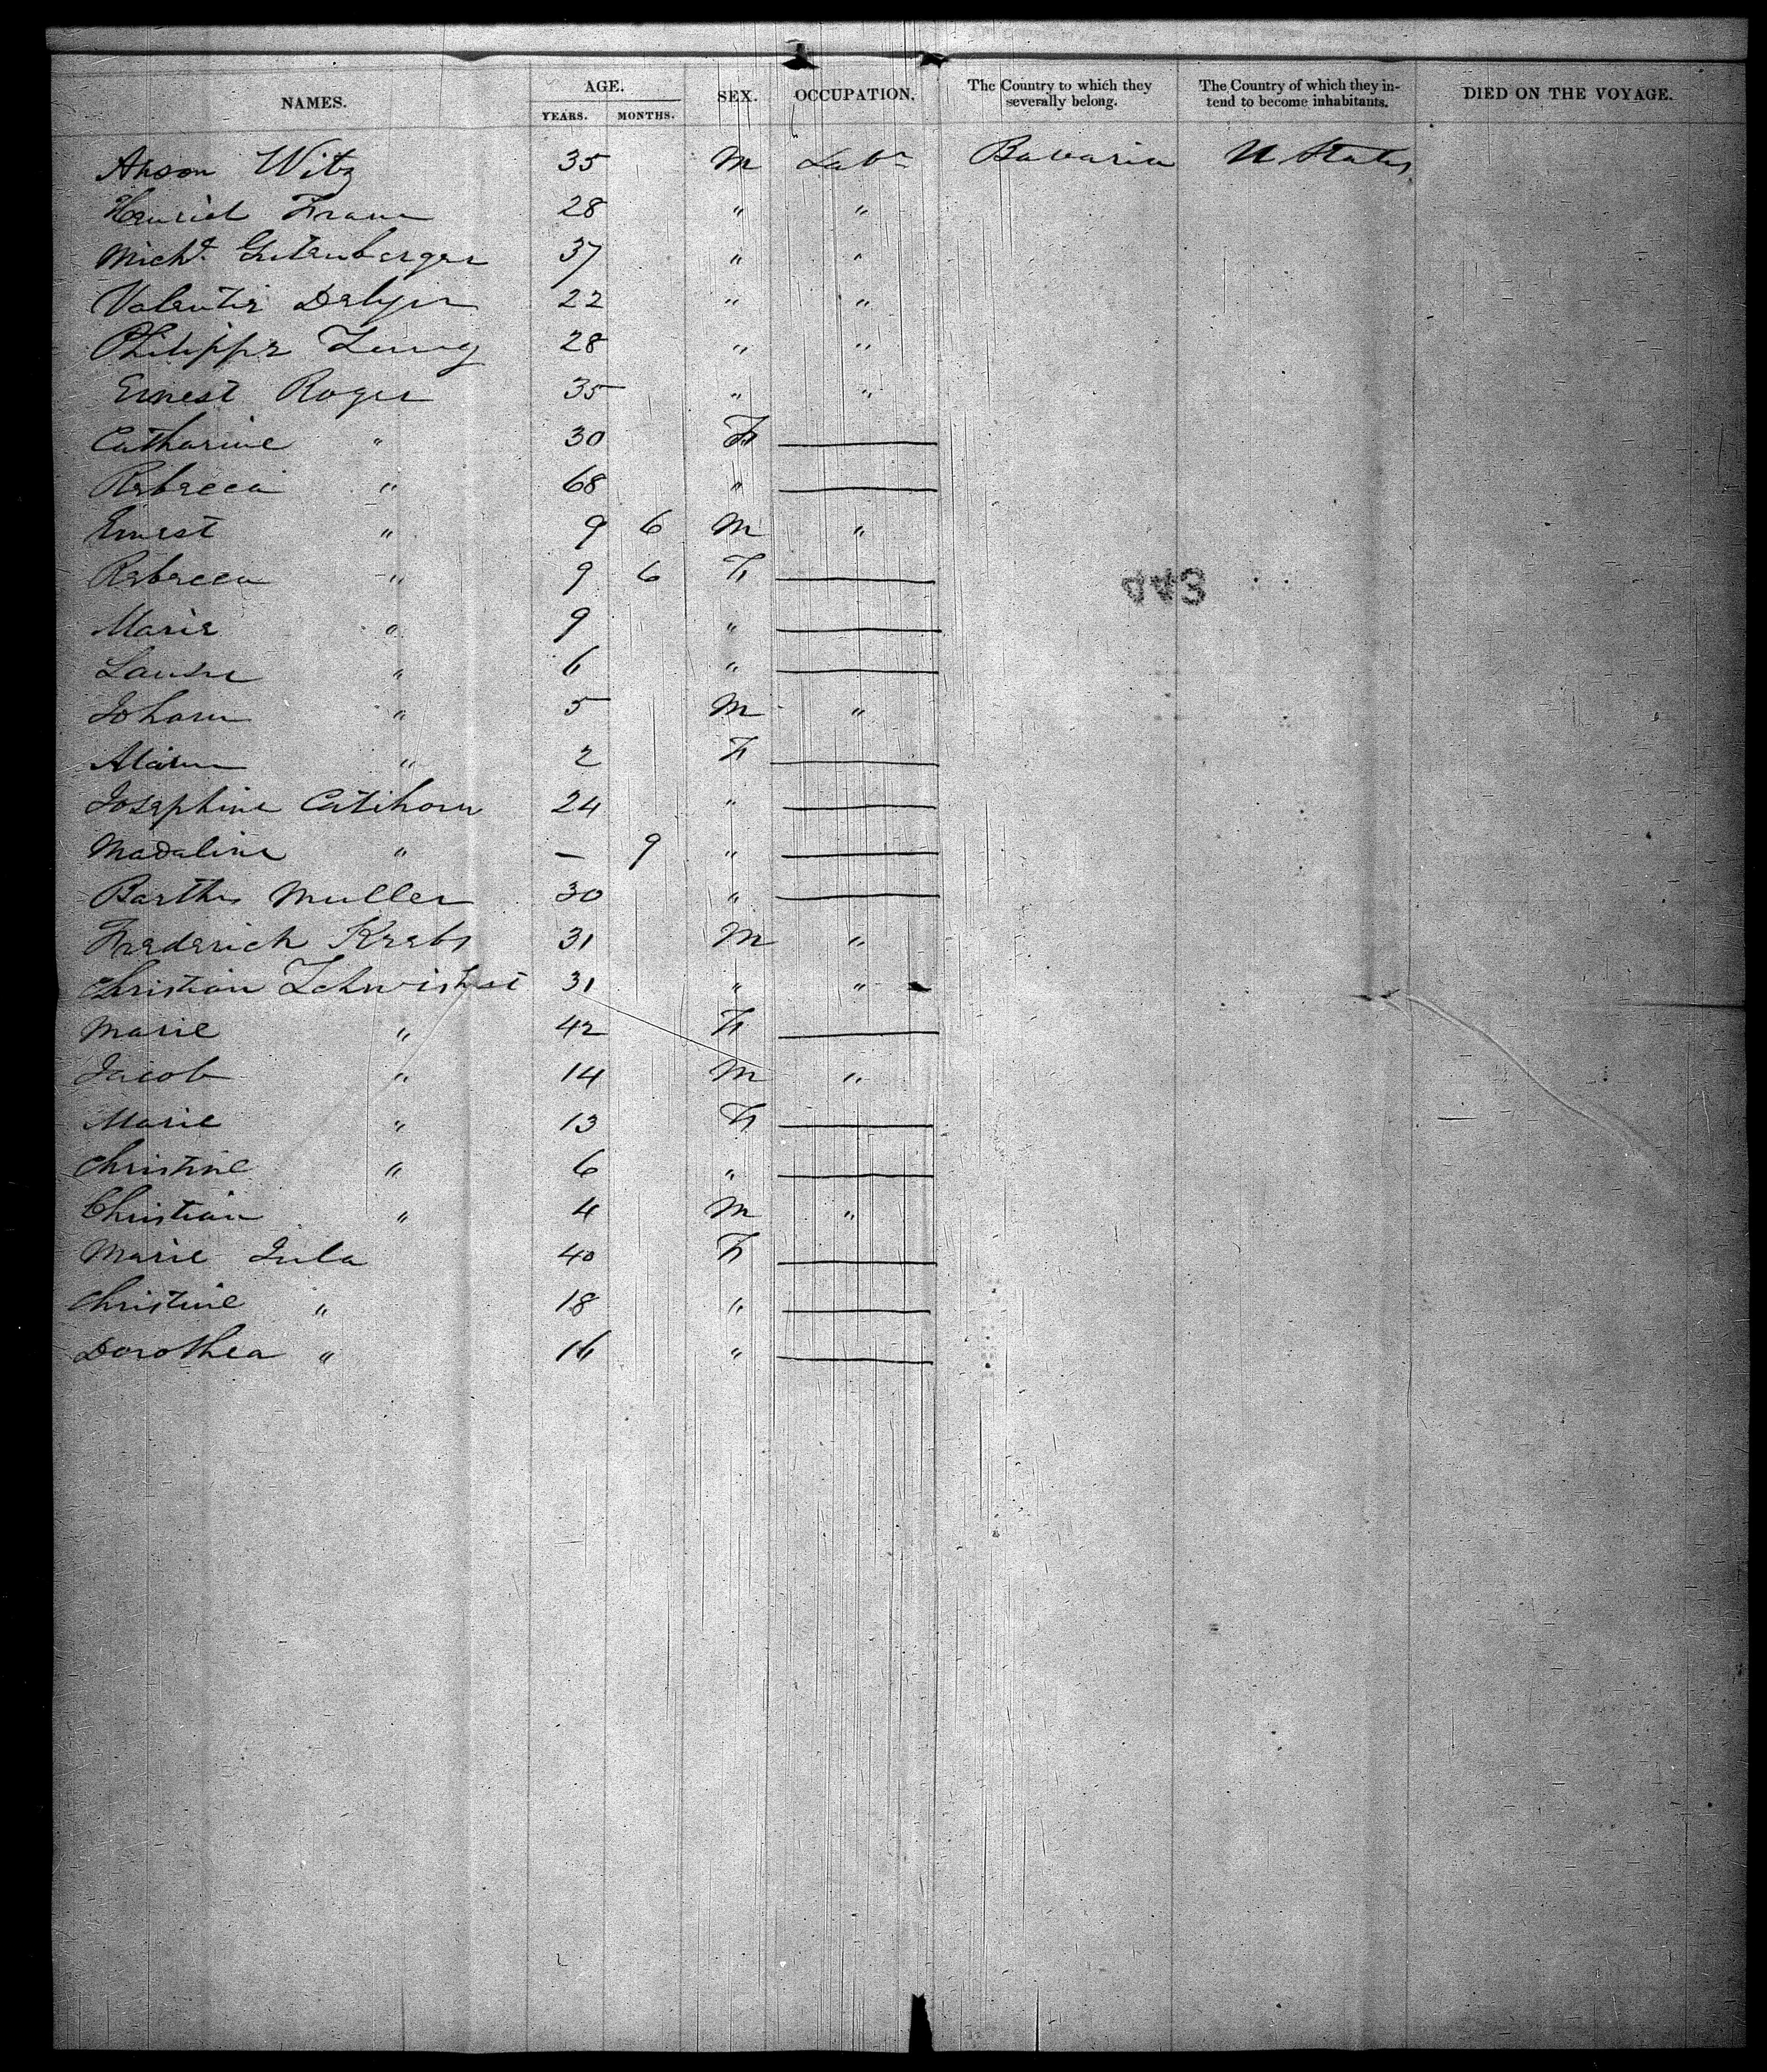 NAMES. AGE. SEX. OCCUPATION. The Country to which they severally belong. The Country of which they intend to become inhabitants. DIED ON THE VOYAGE.
YEARS. MONTHS.
Anson Witz 35 M Labr Bavaria U States
28 " "
Michl. Gutenberger 37 " "
22 " "
Philippe 28 " "
Ernest Roger 35 " "
Catharine " 30 F
Rebecca " 68 "
Ernest " 9 6 M "
Rebecca " 9 6 F
443
Marie " 9 "
Louise " 6 "
Johann " 5 M "
" 2 F
Josephine Catihorn 24 "
Madaline " — 9 "
Muller 30 "
Frederich Krebs 31 M "
Christian 31 " "
Marie " 42 F
Jacob " 14 M "
Marie " 13 F
Christine " 6 "
Christian " 4 M "
Marie Jula 40 F
Christine " 18 "
Dorothea " 16 "